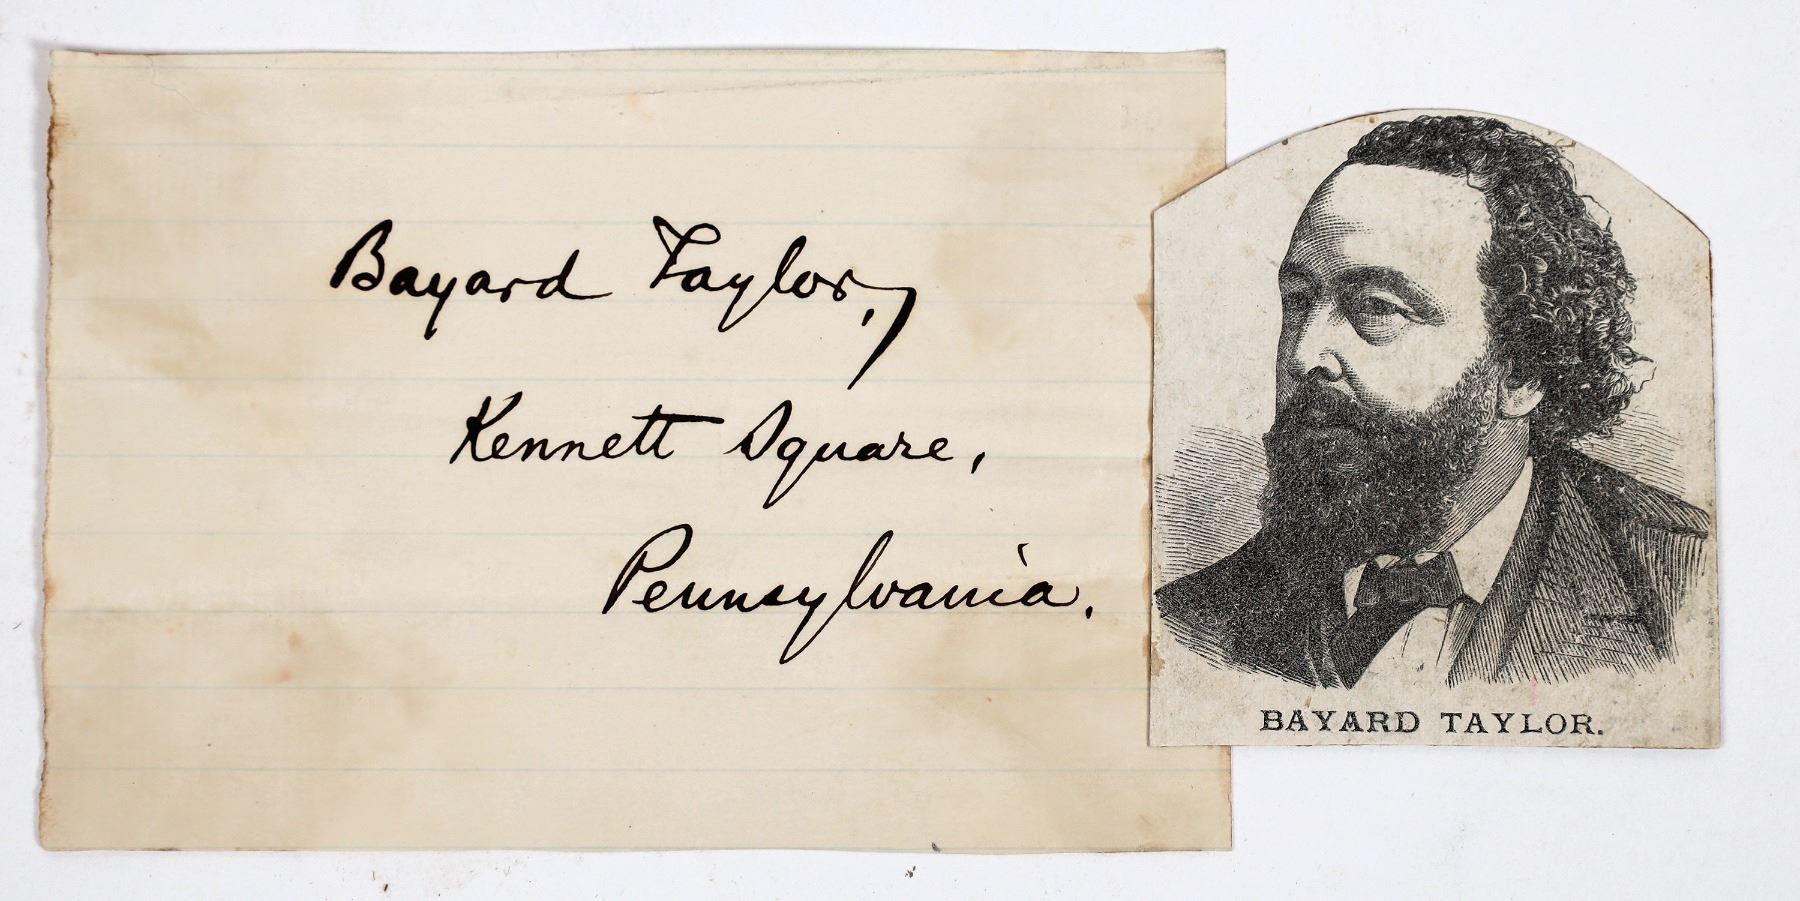 Bayard Taylor,
Kennett Square,
Pennsylvania.
BAYARD TAYLOR.